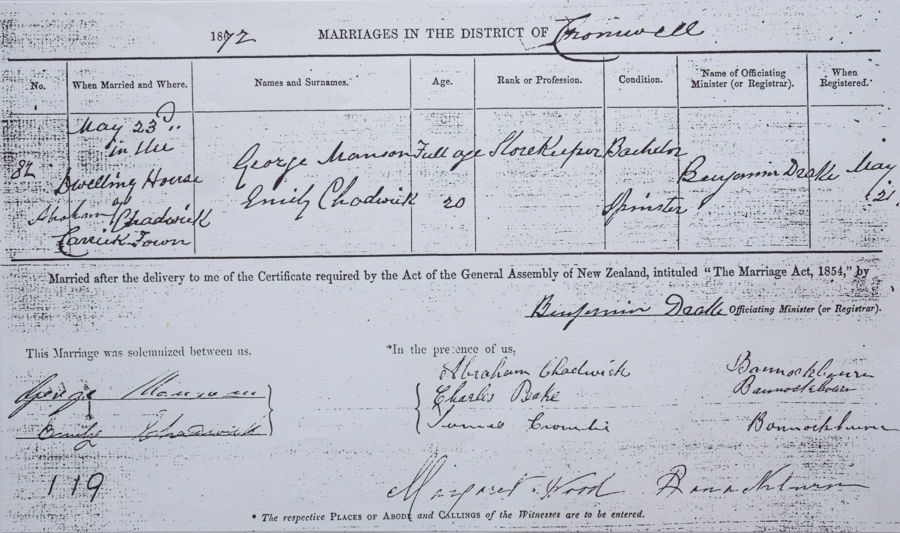 1872 MARRIAGES IN THE DISTRICT OF Cromwell
No. When Married and Where. Names and Surnames. Age. Rank or Profession. Condition. Name of Officiating Minister (or Registrar). When Registered.
May 23d
in the
82 Dwelling House George Manson Full age StoreKeeper Bachelor Benjamin Drake May
of
Abraham Chadwick Emily Chadwick 20 Spinster 21
Carrick Town
Married after the delivery to me of the Certificate required by the Act of the General Assembly of New Zealand, intituled "The Marriage Act, 1854," by
Benjamin Drake Officiating Minister (or Registrar).
This Marriage was solemnized between us. *In the presence of us,
Abraham Chadwick Bannockburn
George Manson Charles Bannockburn
Emily Chadwick James Crombie Bannockburn
119 Margaret Wood Bannockburn
* The respective PLACES OF ABODE and CALLINGS of the Witnesses are to be entered.